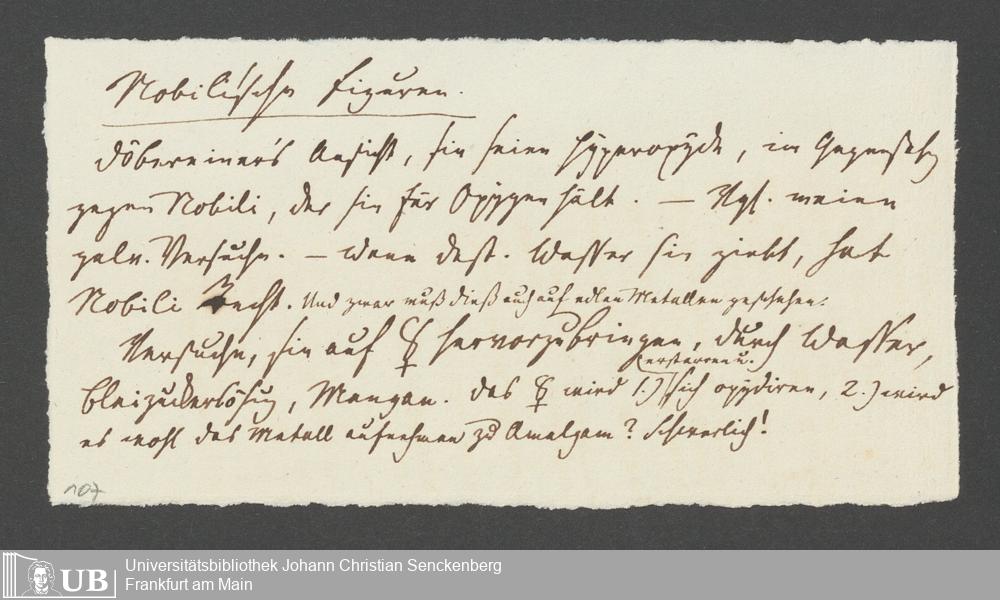 Nobili'sche Figuren.
Döbereiner's Ansicht, sie seien Hyperoxyde, im Gegensatz
gegen Nobili, der sie für Oxygen hält. — Vgl. meine
galv. Versuche. — Wenn dest. Wasser sie giebt, hat
Nobili Recht. Und zwar muß dieß auch auf edlen Metallen geschehen.
Versuche, sie auf ☿ hervorzubringen, durch Wasser,
Bleizuckerlösung, Mangan. Das ☿ wird 1.) erstarren u. sich oxydiren, 2.) wird
es wohl das Metall aufnehmen zu Amalgam? Schwerlich!
107
UB
Universitätsbibliothek Johann Christian Senckenberg
Frankfurt am Main